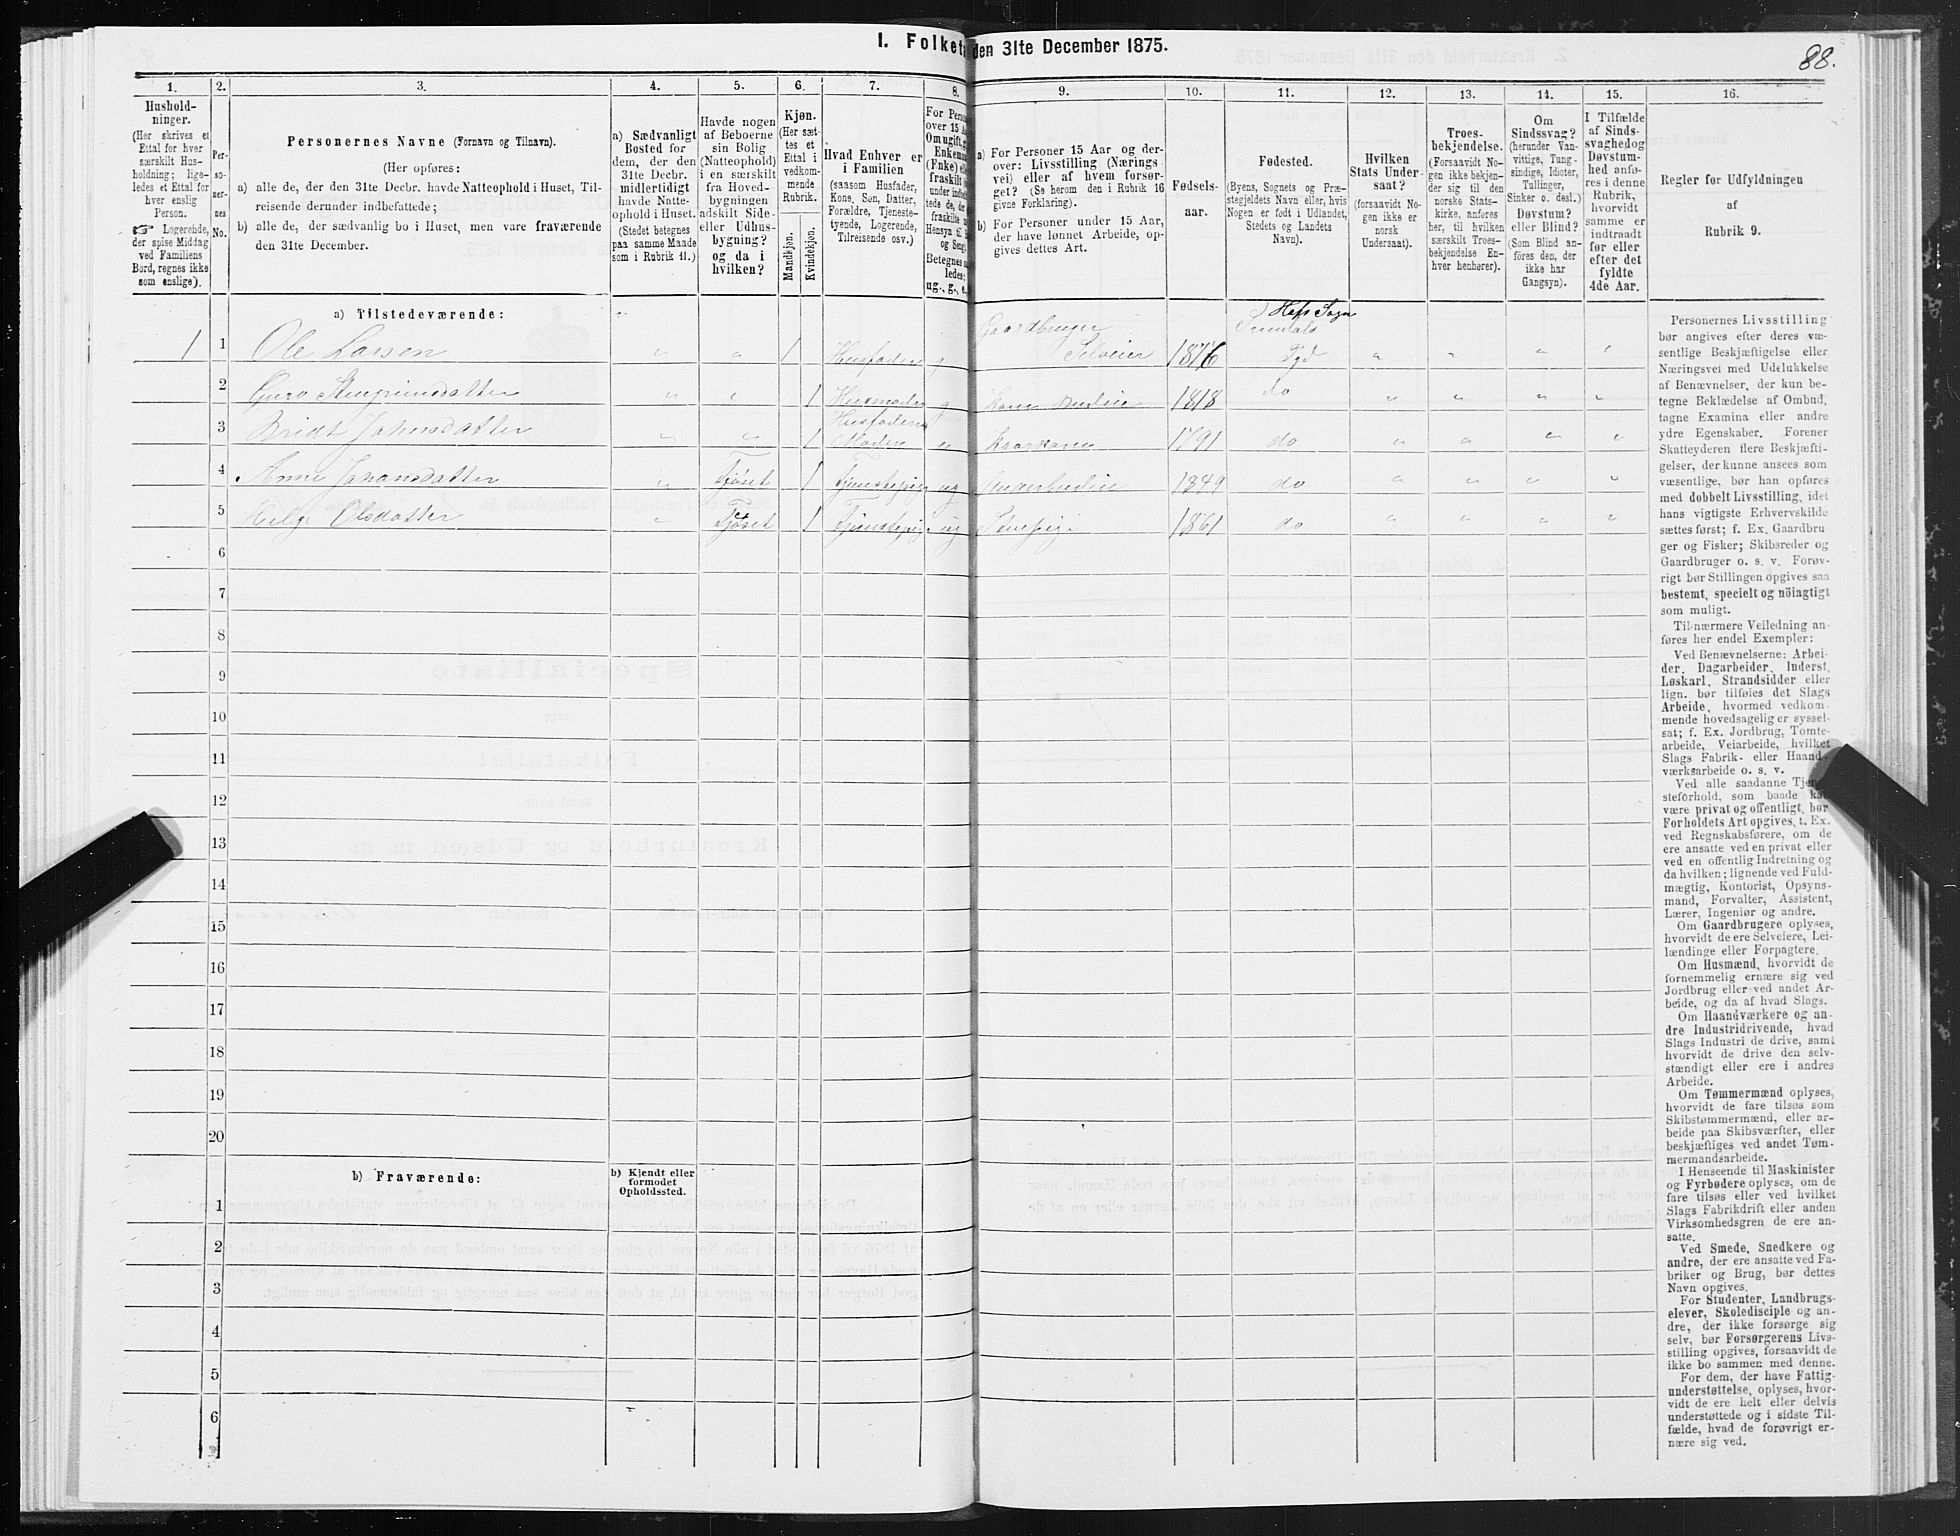 88.
I. Folket den 31te December 1875.
1. 2. 3. 4. 5. 6. 7. 8. 9. 10. 11. 12. 13. 14. 15. 16.
Hushold-
ninger.
(Her skrives et
Ettal for hver
særskilt Hus-
holdning; lige-
ledes et Ettal for
hver enslig
Person.
☞ Logerende,
der spise Middag
ved Familiens
Bord, regnes ikke
som enslige).
Per-
so-
ner-
nes
No.
Personernes Navne (Fornavn og Tilnavn).
(Her opføres:
a) alle de, der den 31te Decbr. havde Natteophold i Huset, Til-
reisende derunder indbefattede;
b) alle de, der sædvanlig bo i Huset, men vare fraværende
den 31te December.
a) Sædvanligt
Bosted for
dem, der den
31te Decbr.
midlertidigt
havde Natte-
ophold i Huset.
(Stedet betegnes
paa samme Maade
som i Rubrik 11.)
Havde nogen
af Beboerne
sin Bolig
(Natteophold)
i en særskilt
fra Hoved-
bygningen
adskilt Side-
eller Udhus-
bygning?
og da i
hvilken?
Kjøn.
(Her sæt-
tes et
Ettal i
vedkom-
mende
Rubrik.
Mandkjøn.
Kvindekjøn.
Hvad Enhver er
i Familien
(saasom Husfader,
Kone, Søn, Datter,
Forældre, Tjeneste-
tyende, Logerende,
Tilreisende osv.)
For Pers
over 15 Aa
Om ugift, g
Enkem
(Enke) el
fraskilt
under indb
tede de, d
fraskilte
Hensyn til
og Seng
Betegnes
ledes:
ug., g., e.
a) For Personer 15 Aar og der-
over: Livsstilling (Nærings
vei) eller af hvem forsør-
get? (Se herom den i Rubrik 16
givne Forklaring).
b) For Personer under 15 Aar,
der have lønnet Arbeide, op-
gives dettes Art.
Fødsels-
aar.
Fødested.
(Byens, Sognets og Præ-
stegjeldets Navn eller, hvis
Nogen er født i Udlandet,
Stedets og Landets
Navn).
Hvilken
Stats Under-
saat?
(forsaavidt No-
gen ikke er
norsk
Undersaat).
Troes-
bekjendelse.
(Forsaavidt No-
gen ikke bekjen-
der sig til den
norske Stats-
kirke, anføres
her, til hvilken
særskilt Troes-
bekjendelse En-
hver henhører).
Om
Sindssvag?
(herunder Van-
vittige, Tung-
sindige, Idioter,
Tullinger,
Sinker o. desl.)
Døvstum?
eller Blind?
(Som Blind an-
føres den, der
ikke har
Gangsyn).
I Tilfælde
af Sinds-
svaghed og
Døvstum-
hed anfø-
res i denne
Rubrik,
hvorvidt
samme er
indtraadt
før eller
efter det
fyldte
4de Aar.
Regler for Udfyldningen
af
Rubrik 9.
a) Tilstedeværende:
1 1 Ole Larsen " " 1 Husfader g Gaardbruger Selveier 1816 Hofs Sogn Sundals Pgd " " " "
2 Guro Stengrimsdatter " " 1 Husmoder g 1818 do " " " "
3 Bridt Johnsdatter " " 1 Husfaderens Moder e Kaarkone 1791 do " " " "
4 Anne Johansdatter " Fjøset 1 Tjenestepige ug 1849 do " " " "
5 Helge Olsdatter " Fjøset 1 Tjenestepige ug 1861 do " " " "
6
7
8
9
10
11
12
13
14
15
16
17
18
19
20
b) Fraværende:
b) Kjendt eller
formodet
Opholdssted.
1
2
3
4
5
6
Personernes Livsstilling
bør angives efter deres væ-
sentlige Beskjæftigelse eller
Næringsvei med Udelukkelse
af Benævnelser, der kun be-
tegne Beklædelse af Ombud,
tagne Examina eller andre
ydre Egenskaber. Forener
Skatteyderen flere Beskjæfti-
gelser, der kunne ansees som
væsentlige, bør han opføres
med dobbelt Livsstilling, idet
hans vigtigste Erhvervskilde
sættes først; f. Ex. Gaardbru
ger og Fisker; Skibsreder og
Gaardbruger o. s. v. Forøv-
rigt bør Stillingen opgives saa
bestemt, specielt og nöiagtigt
som muligt.
Til nærmere Veiledning an-
føres her endel Exempler:
Ved Benævnelserne: Arbei-
der, Dagarbeider, Inderst,
Løskarl, Strandsidder eller
lign. bør tilføies det Slags
Arbeide, hvormed vedkom-
mende hovedsagelig er syssel-
sat; f. Ex. Jordbrug, Tomte-
arbeide, Veiarbeide, hvilket
Slags Fabrik- eller Haand-
værksarbeide o. s. v.
Ved alle saadanne Tjene-
steforhold, som baade kan
være privat og offentligt, bør
Forholdets Art opgives, t. Ex.
ved Regnskabsførere, om de
ere ansatte ved en privat eller
ved en offentlig Indretning og
da hvilken; lignende ved Fuld-
mægtig, Kontorist, Opsyns-
mand, Forvalter, Assistent,
Lærer, Ingeniør og andre.
Om Gaardbrugere oplyses,
hvorvidt de ere Selveiere, Lei-
lændinge eller Forpagtere.
Om Husmænd, hvorvidt de
fornemmelig ernære sig ved
Jordbrug eller ved andet Ar-
beide, og da af hvad Slags.
Om Haandværkere og an-
dre Industridrivende, hvad
Slags Industri de drive, samt
hvorvidt de drive den selv-
stændigt eller ere i andres
Arbeide.
Om Tømmermænd oplyses,
hvorvidt de fare tilsøs som
Skibstømmermænd, eller ar-
beide paa Skibsværfter, eller
beskjæftiges ved andet Tøm-
mermandsarbeide.
I Henseende til Maskinister
og Fyrbødere oplyses, om de
fare tilsøs eller ved hvilket
Slags Fabrikdrift eller anden
Virksomhedsgren de ere an-
satte.
Ved Smede, Snedkere og
andre, der ere ansatte ved Fa-
briker og Brug, bør dettes
Navn opgives.
For Studenter, Landbrugs-
elever, Skoledisciple og an-
dre, der ikke forsørge sig
selv, bør Forsørgerens Livs-
stilling opgives, forsaavidt de
ikke bo sammen med denne.
For dem, der have Fattig-
understøttelse, oplyses, hvor-
vidt de ere helt eller delvis
understøttede og i sidste Til-
fælde, hvad de forøvrigt er-
nære sig ved.